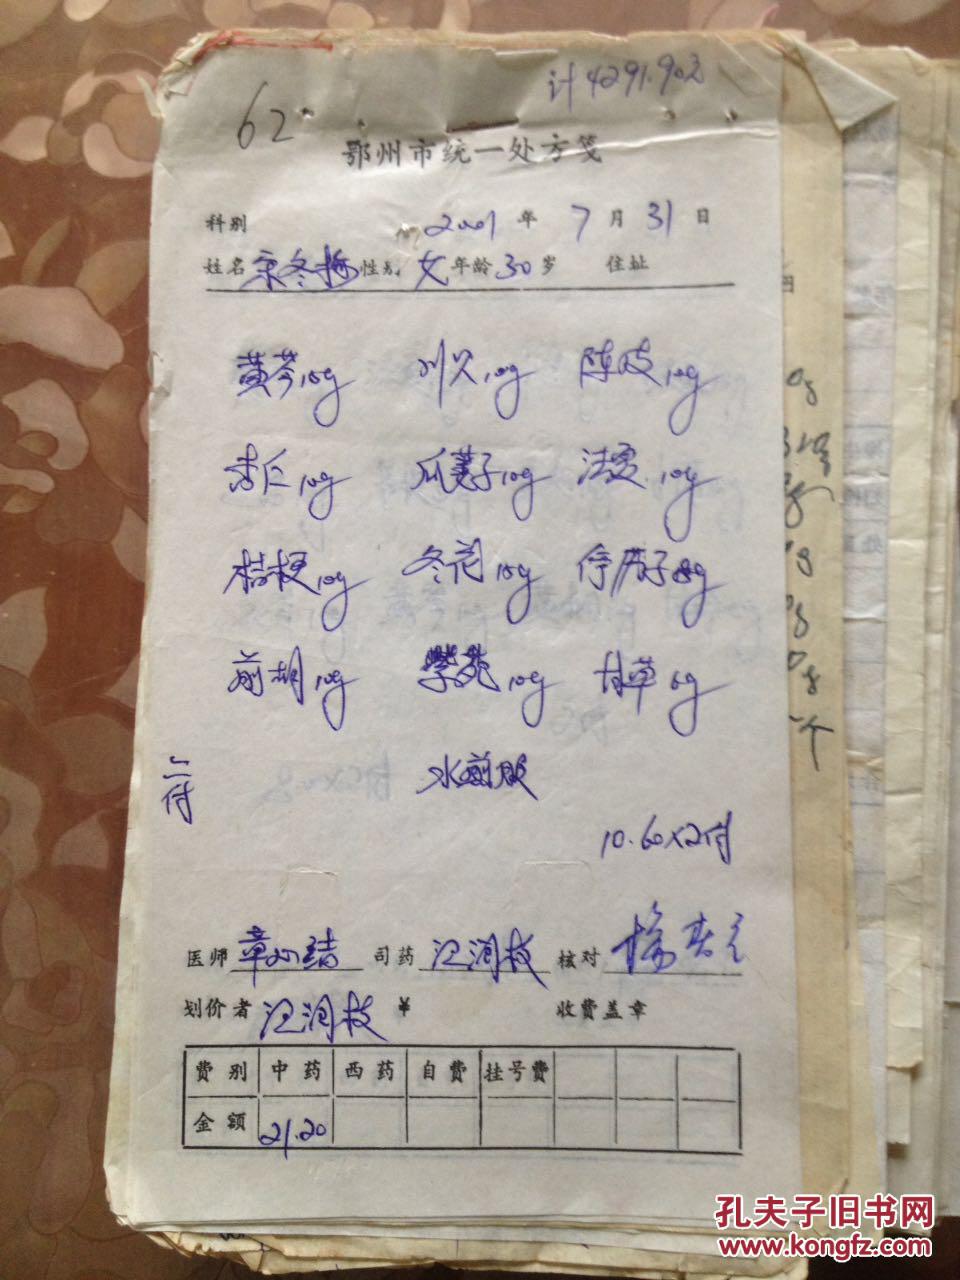 计4291.90元
62
鄂州市统一处方笺
科别 2001年7月31日
姓名 宋冬梅 性别 女 年龄 30 岁 住址
黄芩10g 川贝10g 陈皮10g
杏仁10g 瓜蒌子10g 法夏10g
桔梗10g 冬花10g 葶苈子8g
前胡10g 紫苑10g 甘草6g
水煎服
二付
10.60×2付
医师 司药 汪润枝 核对
划价者 汪润枝 ¥ 收费盖章
费别 中药 西药 自费 挂号费
金额 21.20
孔夫子旧书网
www.kongfz.com